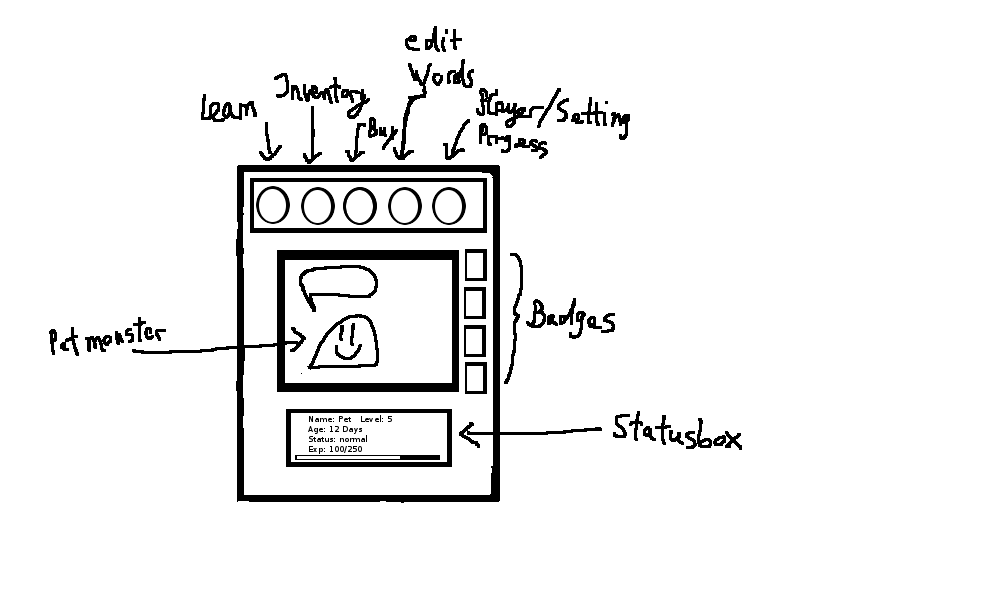 edit
Words
Learn
Inventory
Buy
Player/Setting
Prgess
Badges
Pet monster
Name: Pet Level: 5
Age: 12 Days
Status: normal
Exp: 100/250
Statusbox